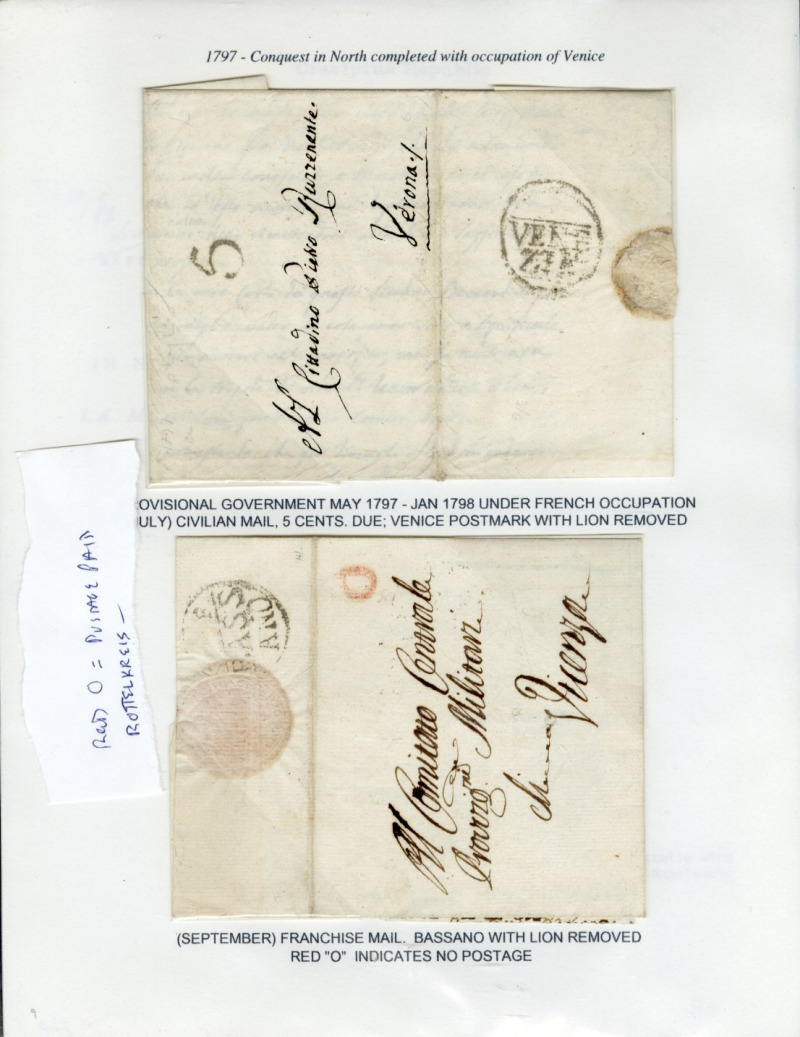 1797 - Conquest in North completed with occupation of Venice
5
Al Cittadino Pietro Buzzenente.
Verona
VENE
ZIA
OVISIONAL GOVERNMENT MAY 1797 - JAN 1798 UNDER FRENCH OCCUPATION
ULY) CIVILIAN MAIL, 5 CENTS. DUE; VENICE POSTMARK WITH LION REMOVED
RED O = POSTAGE PAID
ROTTELKREIS -
B
ASS
ANO
O
Al Comitato Centrale
Militare
Vicenza
(SEPTEMBER) FRANCHISE MAIL. BASSANO WITH LION REMOVED
RED "O" INDICATES NO POSTAGE
9